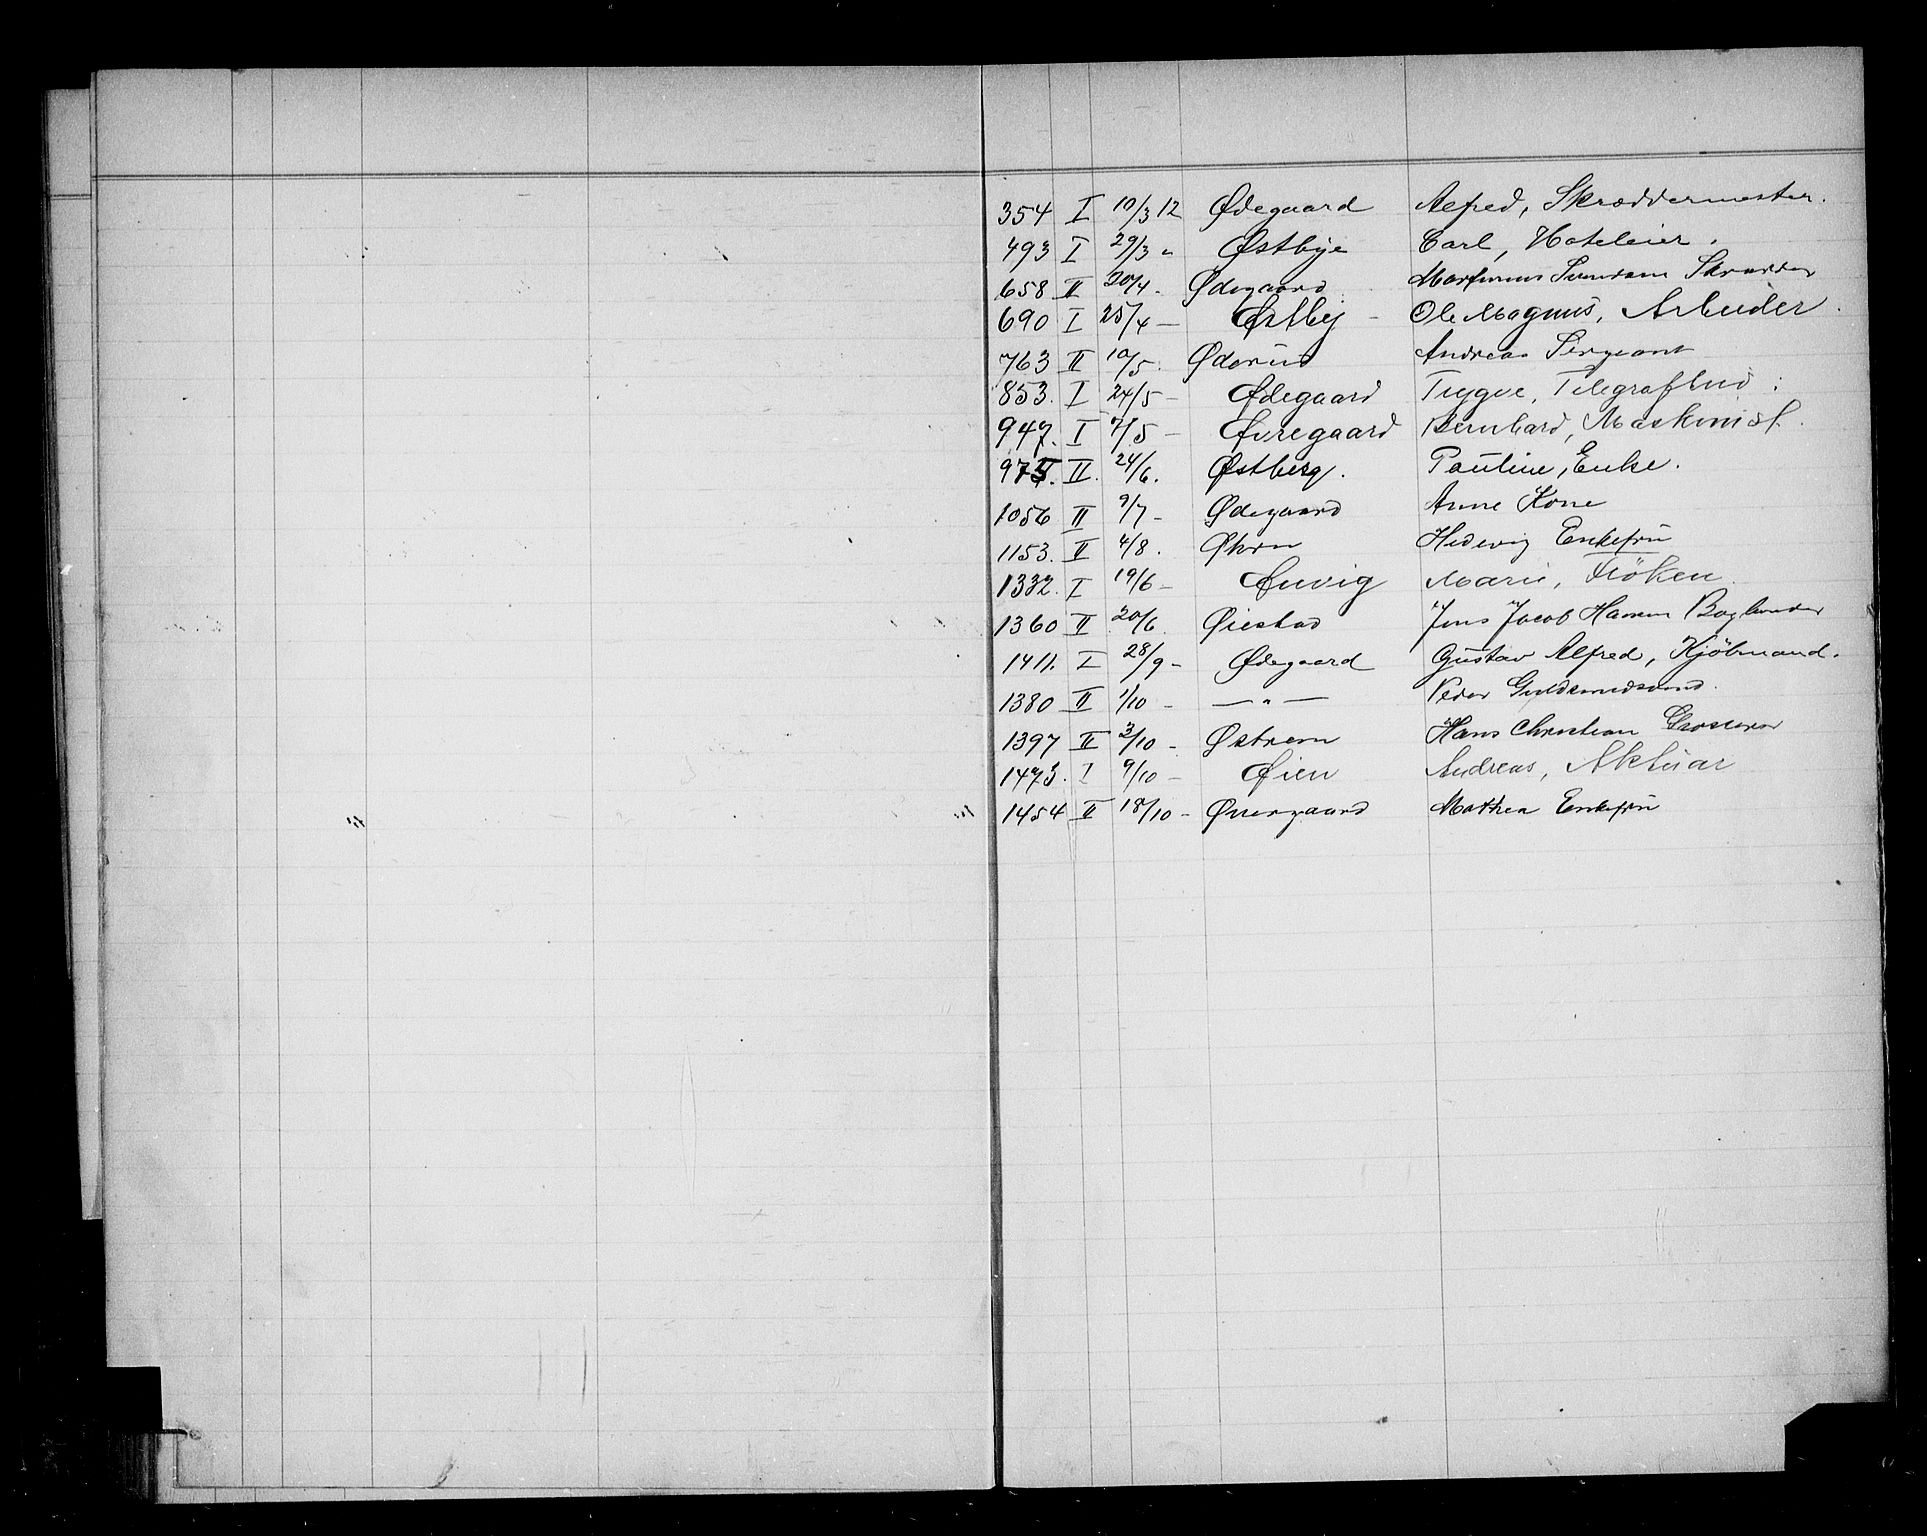 354 I 10/3 12 Ødegaard Alfred, Skræddermester.
493 I 29/3 " Østbye Carl, Hoteleier.
658 II 20/4 - Ødegaard Martinus Svendsen Skrædder
690 I 25/4 — Østby - Ole Magnus, Arbeider.
763 II 10/5. Øderud Andreas Sergeant
853. I 24/5 - Ødegaard Trygve, Telegrafbud.
947. I 7/5 — Øvregaard Bernhard, Maskinist.
975. II. 24/6. Østberg. Pauline, Enke.
1056 II 9/7 - Ødegaard Anne Kone
1153. II 4/8. Øhrn Hedevig Enkefru
1332. I 19/6 - Marie, Frøken
1360 II 20/6 Øiestad Jens Jacob Hansen Bogbinder
1411. I 28/9 - Ødegaard Gustav Alfred, Kjöbmand.
1380 II 1/10 - — " — Peder Guldsmedsvend.
1397 II 3/10 - Østrem Hans Christian
1473. I 9/10 — Øien Andreas, Aktuar
1454 II 18/10 - Øvergaard Mathea Enkefru